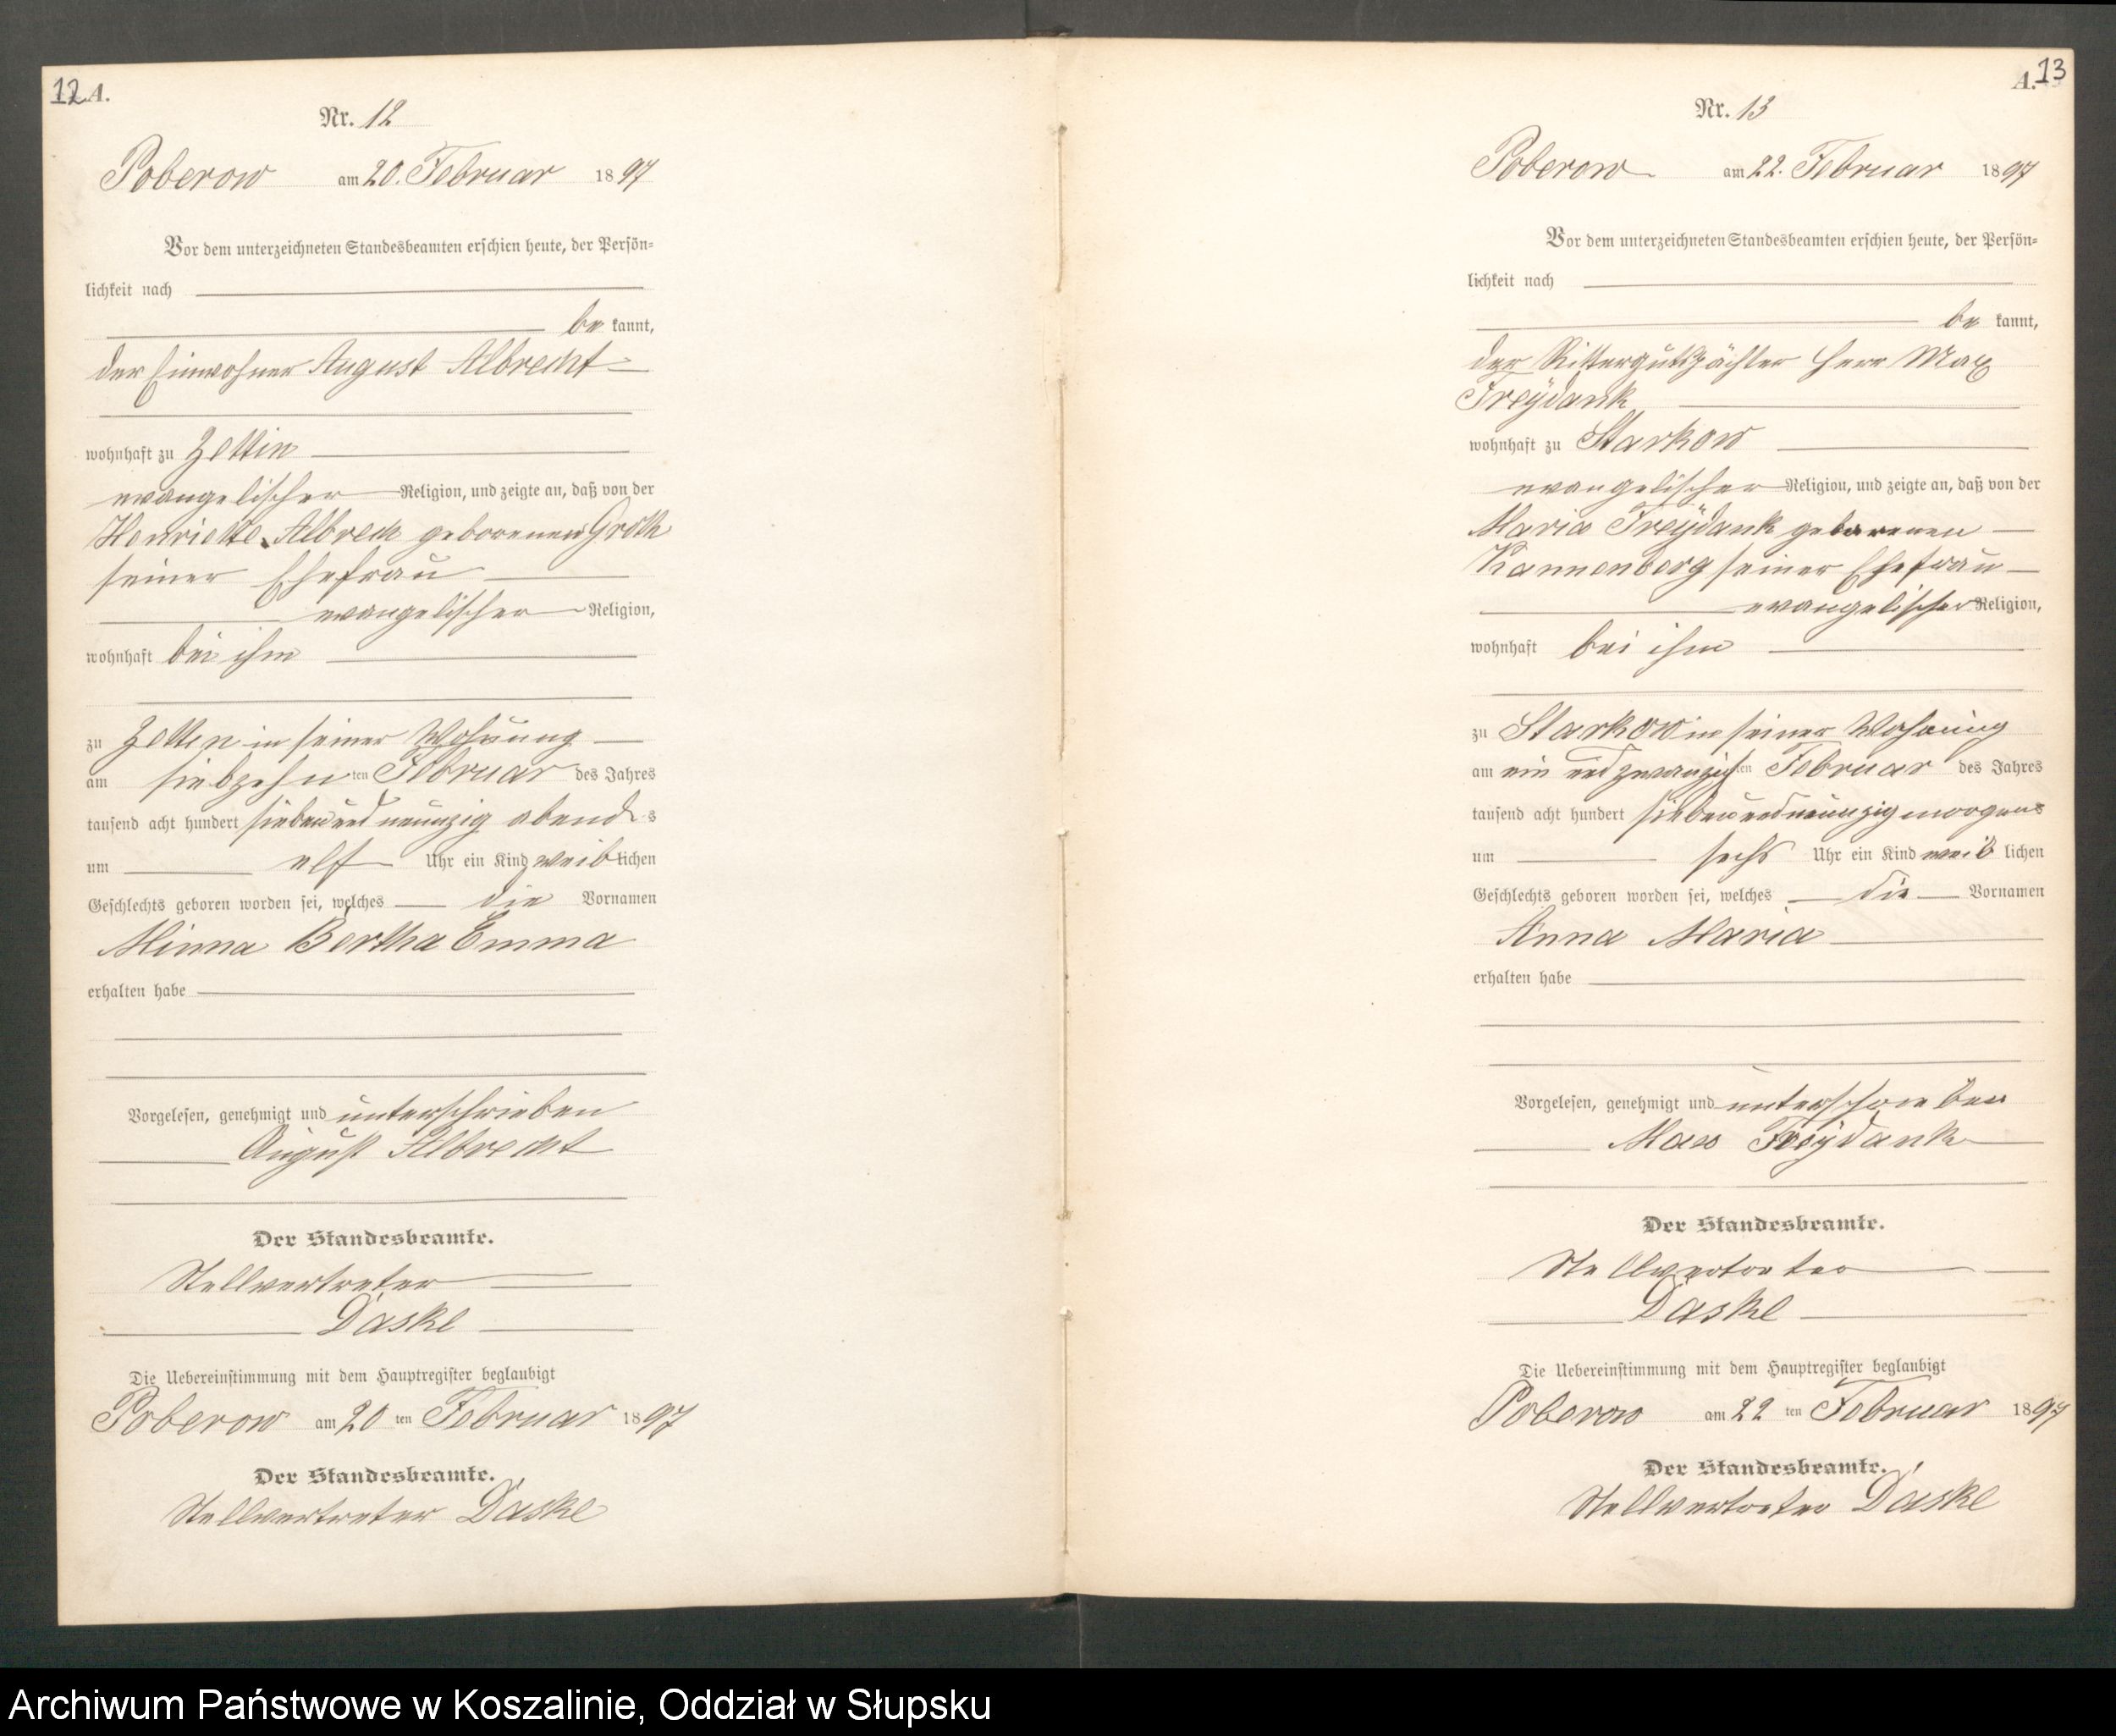 12 A.
Nr. 12
Poberow am 20. Februar 1897
Vor dem unterzeichneten Standesbeamten erschien heute, der Persön=
lichkeit nach
be kannt,
der Einwohner August Albrecht
wohnhaft zu Zettin
evangelischer Religion, und zeigte an, daß von der
Henriette Albrech geborenen Groth
seiner Ehefrau
evangelischer Religion,
wohnhaft bei ihm
zu Zettin in seiner Wohnung
am siebzehnten Februar des Jahres
tausend acht hundert siebenundneunzig abends
um elf Uhr ein Kind weiblichen
Geschlechts geboren worden sei, welches die Vornamen
Minna Bertha Emma
erhalten habe
Vorgelesen, genehmigt und unterschrieben
August Albrecht
Der Standesbeamte.
Stellvertreter
Daske
Die Uebereinstimmung mit dem Hauptregister beglaubigt
Poberow am 20 ten Februar 1897
Der Standesbeamte.
Stellvertreter Daske
A. 13
Nr. 13
Poberow am 22. Februar 1897
Vor dem unterzeichneten Standesbeamten erschien heute, der Persön=
lichkeit nach
be kannt,
der Rittergutspächter Herr Max
Freydank
wohnhaft zu Starkow
evangelischer Religion, und zeigte an, daß von der
Maria Freydank geborenen
Kannenberg seiner Ehefrau
evangelischer Religion,
wohnhaft bei ihm
zu Starkow in seiner Wohnung
am ein und zwanzigsten Februar des Jahres
tausend acht hundert siebenundneunzig morgens
um sechs Uhr ein Kind weiblichen
Geschlechts geboren worden sei, welches die Vornamen
Anna Maria
erhalten habe
Vorgelesen, genehmigt und unterschrieben
Max Freydank
Der Standesbeamte.
Stellvertreter
Daske
Die Uebereinstimmung mit dem Hauptregister beglaubigt
Poberow am 22 ten Februar 1897
Der Standesbeamte.
Stellvertreter Daske
Archiwum Państwowe w Koszalinie, Oddział w Słupsku